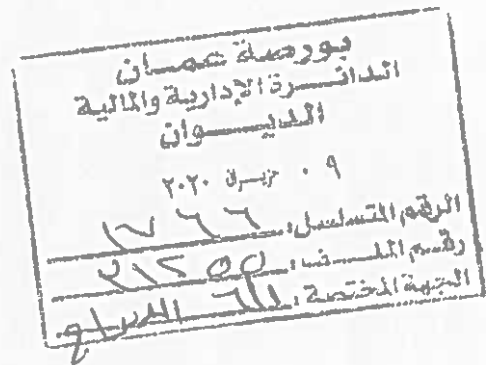 بورصة عمان
الدائرة الإدارية والمالية
الديوان
٠٩ حزيران ٢٠٢٠
الرقم المتسلسل: ١٧٦٦
رقم الملف: ٢١٢٥٥
الجهة المختصة: